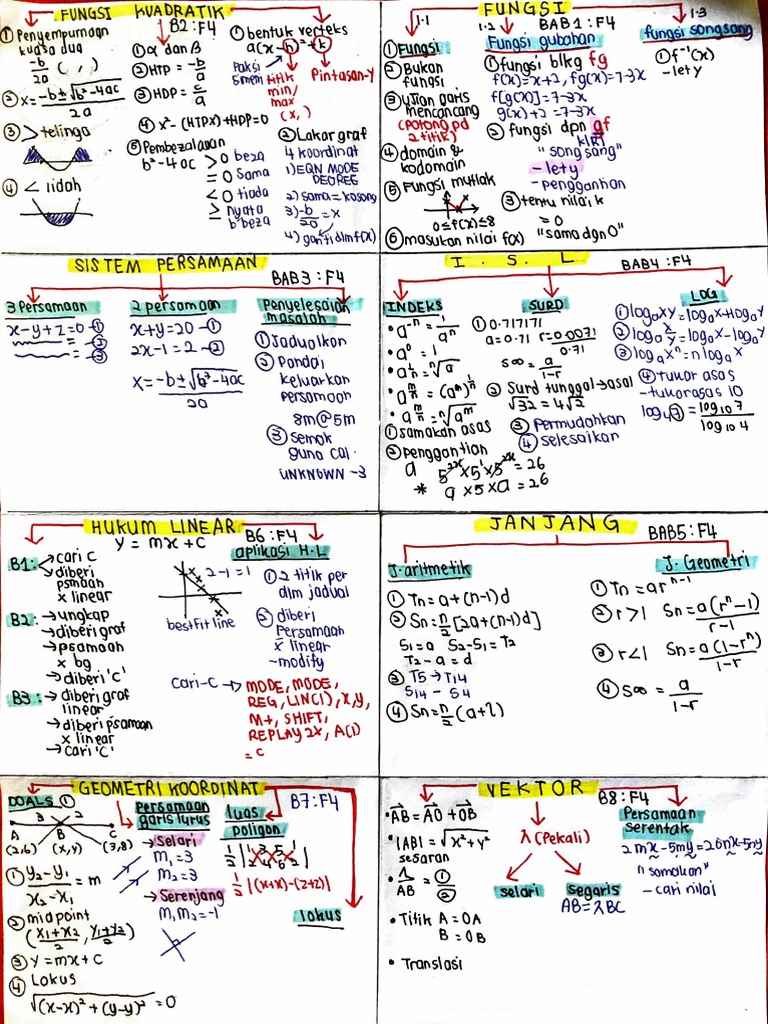 FUNGSI KUADRATIK
B2 : F4
① Penyempurnaan
kuasa dua
-b/2a ( , )
② x = -b±√b²-4ac / 2a
③ > telinga
④ < lidah
① α dan β
② HTP = -b/a
③ HDP = c/a
④ x² - (HTPx) + HDP = 0
⑤ Pembezalayan
b² - 4ac > 0 beza
= 0 sama
< 0 tiada
≥ nyata
b beza
① bentuk verteks
a(x - h)² + k
Paksi
simetri
titik
min/
max
(x, )
Pintasan-y
② Lakar graf
4 koordinat
1) EQN MODE
DEGREE
2) sama = kosong
3) -b/2a = x
4) ganti dlm f(x)
FUNGSI
BAB 1 : F4
1.1
① Fungsi
② Bukan
fungsi
③ ujian garis
mencancang
(potong pd
2 titik)
④ domain &
kodomain
⑤ Fungsi mutlak
0 ≤ f(x) ≤ 8
⑥ masukan nilai f(x)
1.2
Fungsi gubahan
① fungsi blkg fg
f(x) = x+2, fg(x) = 7-3x
f[g(x)] = 7-3x
g(x) + 2 = 7-3x
② fungsi dpn gf
"songsang"
- lety
- penggantian
③ temu nilai k
= 0
"sama dgn 0"
1.3
fungsi songsang
① f⁻¹(x)
- lety
SISTEM PERSAMAAN
BAB3 : F4
3 Persamaan
x - y + z = 0 - ①
= ②
= ③
2 persamaan
x + y = 20 - ①
2x - 1 = 2 - ②
x = -b±√b²-4ac / 2a
Penyelesaian
masalah
① Jadualkan
② Pandai
keluarkan
persamaan
8m @ 5m
③ Semak
guna cal.
UNKNOWN - 3
I . S . L
BAB4 : F4
INDEKS
• a⁻ⁿ = 1/aⁿ
• a⁰ = 1
• a^(1/n) = ⁿ√a
• a^(m/n) = (aᵐ)^(1/n)
• a^(m/n) = ⁿ√aᵐ
① samakan asas
② penggantian
a 5²ˣ × 5¹ × 5²ˣ = 26
* a × 5 × a = 26
SURD
① 0.717171
a = 0.71 r = 0.0071/0.71
S∞ = a/1-r
② Surd tunggal → asal
√32 = 4√2
③ Permudahkan
④ selesaikan
LOG
① logₐxy = logₐx + logₐy
② logₐ x/y = logₐx - logₐy
③ logₐxⁿ = n logₐx
④ tukar asas
- tukar asas 10
log₄7 = log₁₀7 / log₁₀4
HUKUM LINEAR
B6 : F4
y = mx + c
B1: → cari c
→ diberi
psmaan
x linear
B2: → ungkap
→ diberi graf
→ psamaan
x bg
→ diberi 'c'
B3: → diberi graf
linear
→ diberi psamaan
x linear
→ cari 'c'
2 - 1 = 1
best fit line
aplikasi H.L
① 2 titik per
dlm jadual
② diberi
Persamaan
x linear
- modify
cari-c → MODE, MODE,
REG, LIN(1), X,Y,
M+, SHIFT,
REPLAY 2X, A(1)
= c
JANJANG
BAB5 : F4
J. aritmetik
① Tn = a + (n-1)d
② Sn = n/2 [2a + (n-1)d]
S₁ = a S₂ - S₁ = T₂
T₂ - a = d
③ T5 → T14
S14 - S4
④ Sn = n/2 (a + l)
J. Geometri
① Tn = arⁿ⁻¹
② r > 1 Sn = a(rⁿ - 1) / r - 1
③ r < 1 Sn = a(1 - rⁿ) / 1 - r
④ S∞ = a / 1 - r
GEOMETRI KOORDINAT
B7 : F4
①
3 2
A B C
(2,6) (x,y) (3,8)
① y₂ - y₁ / x₂ - x₁ = m
② midpoint
(x₁+x₂/2, y₁+y₂/2)
③ y = mx + c
④ Lokus
√(x-x)² + (y-y)² = 0
Persamaan
garis lurus
→ Selari
m₁ = 3
m₂ = 3
→ Serenjang
m₁m₂ = -1
luas
poligon
½ | 1 3 5 1
2 4 6 2 |
½ |(x+x) - (z+z)|
lokus
VEKTOR
B8 : F4
• AB = AO + OB
• |AB| = √x² + y²
sesaran
AB = ①/②
• Titik A = OA
B = OB
• Translasi
λ (Pekali)
selari
segaris
AB = λBC
Persamaan
serentak
2mx - 5my = 20nx - 5ny
"samakan"
- cari nilai